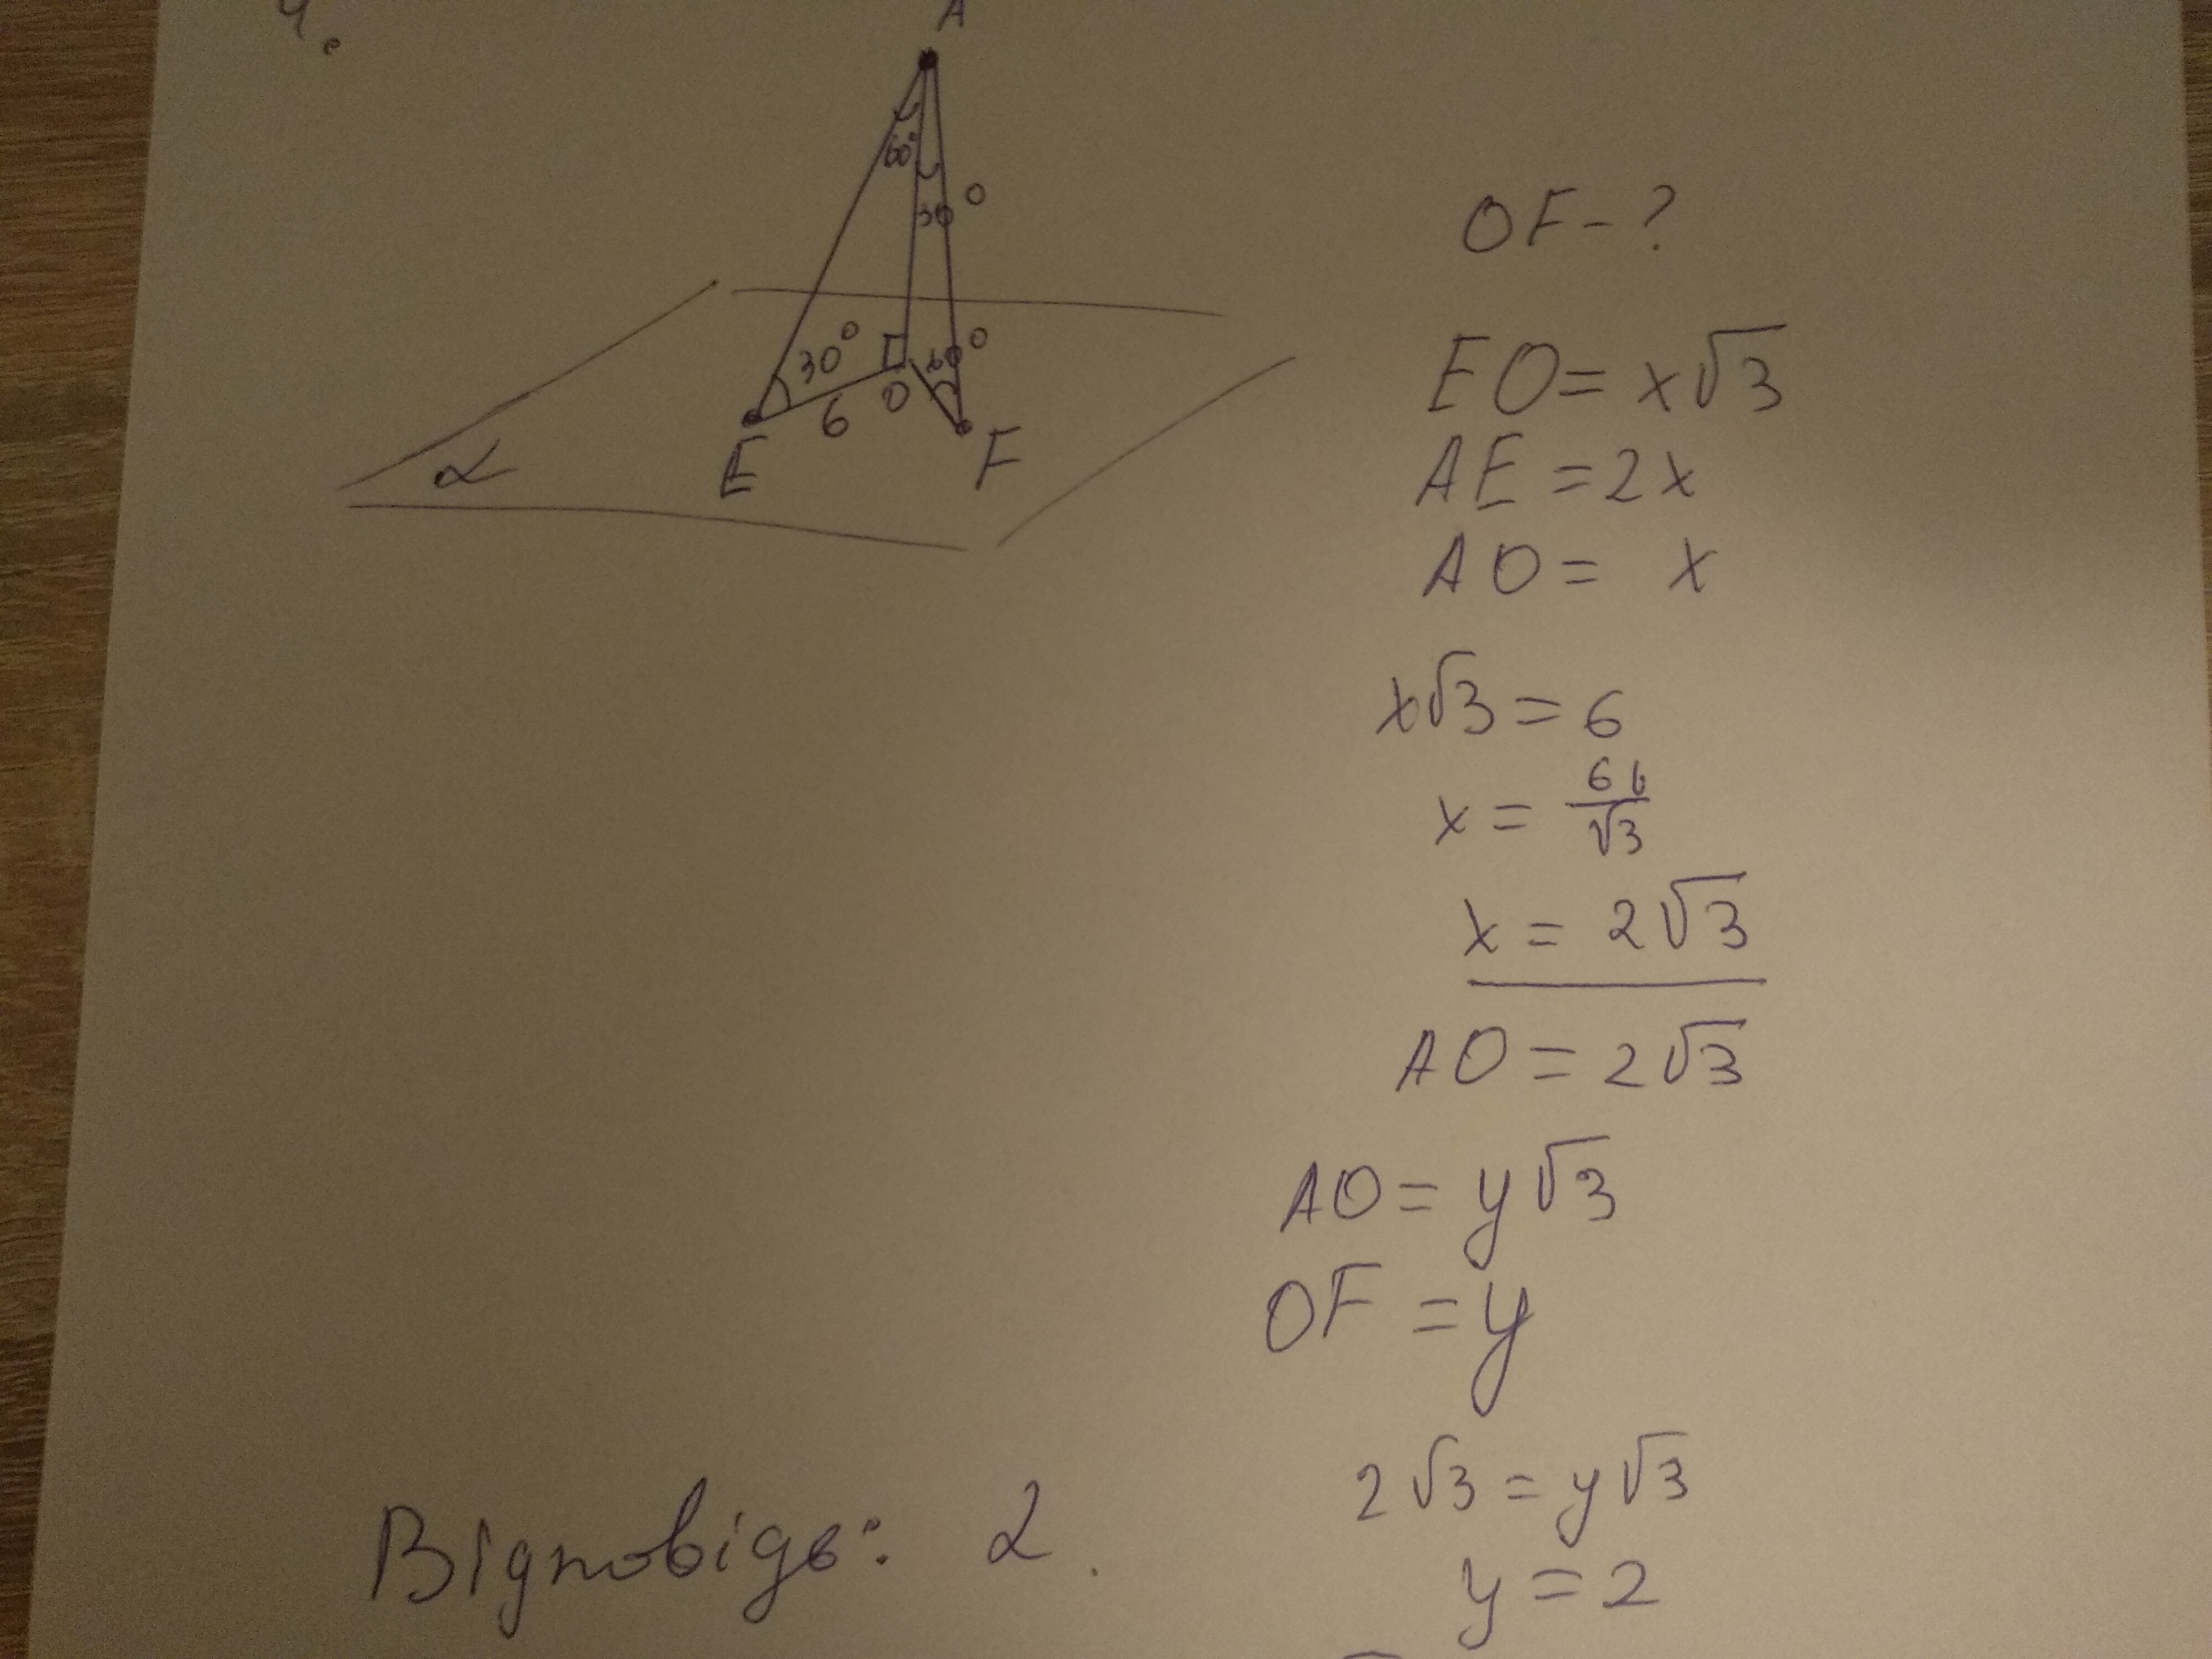 4.
A
60°
30°
30°
60°
6
O
E
F
α
OF - ?
EO = x√3
AE = 2x
AO = x
x√3 = 6
x = 6 6/√3
x = 2√3
AO = 2√3
AO = y√3
OF = y
2√3 = y√3
y = 2
Відповідь: 2.